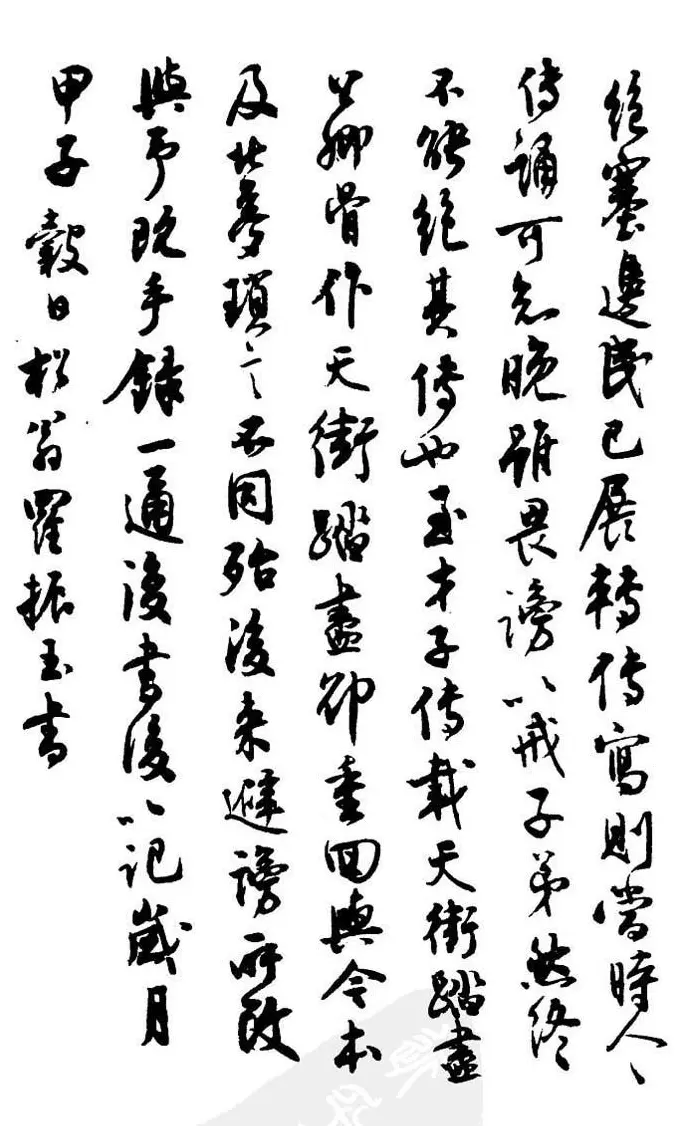 絶塞邊民已展轉傳寫則當時人〻
傳誦可知晚雖畏謗以戒子弟然終
不能絶其傳也至才子傳載天街踏盡
公卿骨作天街踏盡卻重回與今本
及北夢瑣言不同殆後來避謗所改
與予既手錄一通復書後以記歲月
甲子穀日松翁羅振玉書